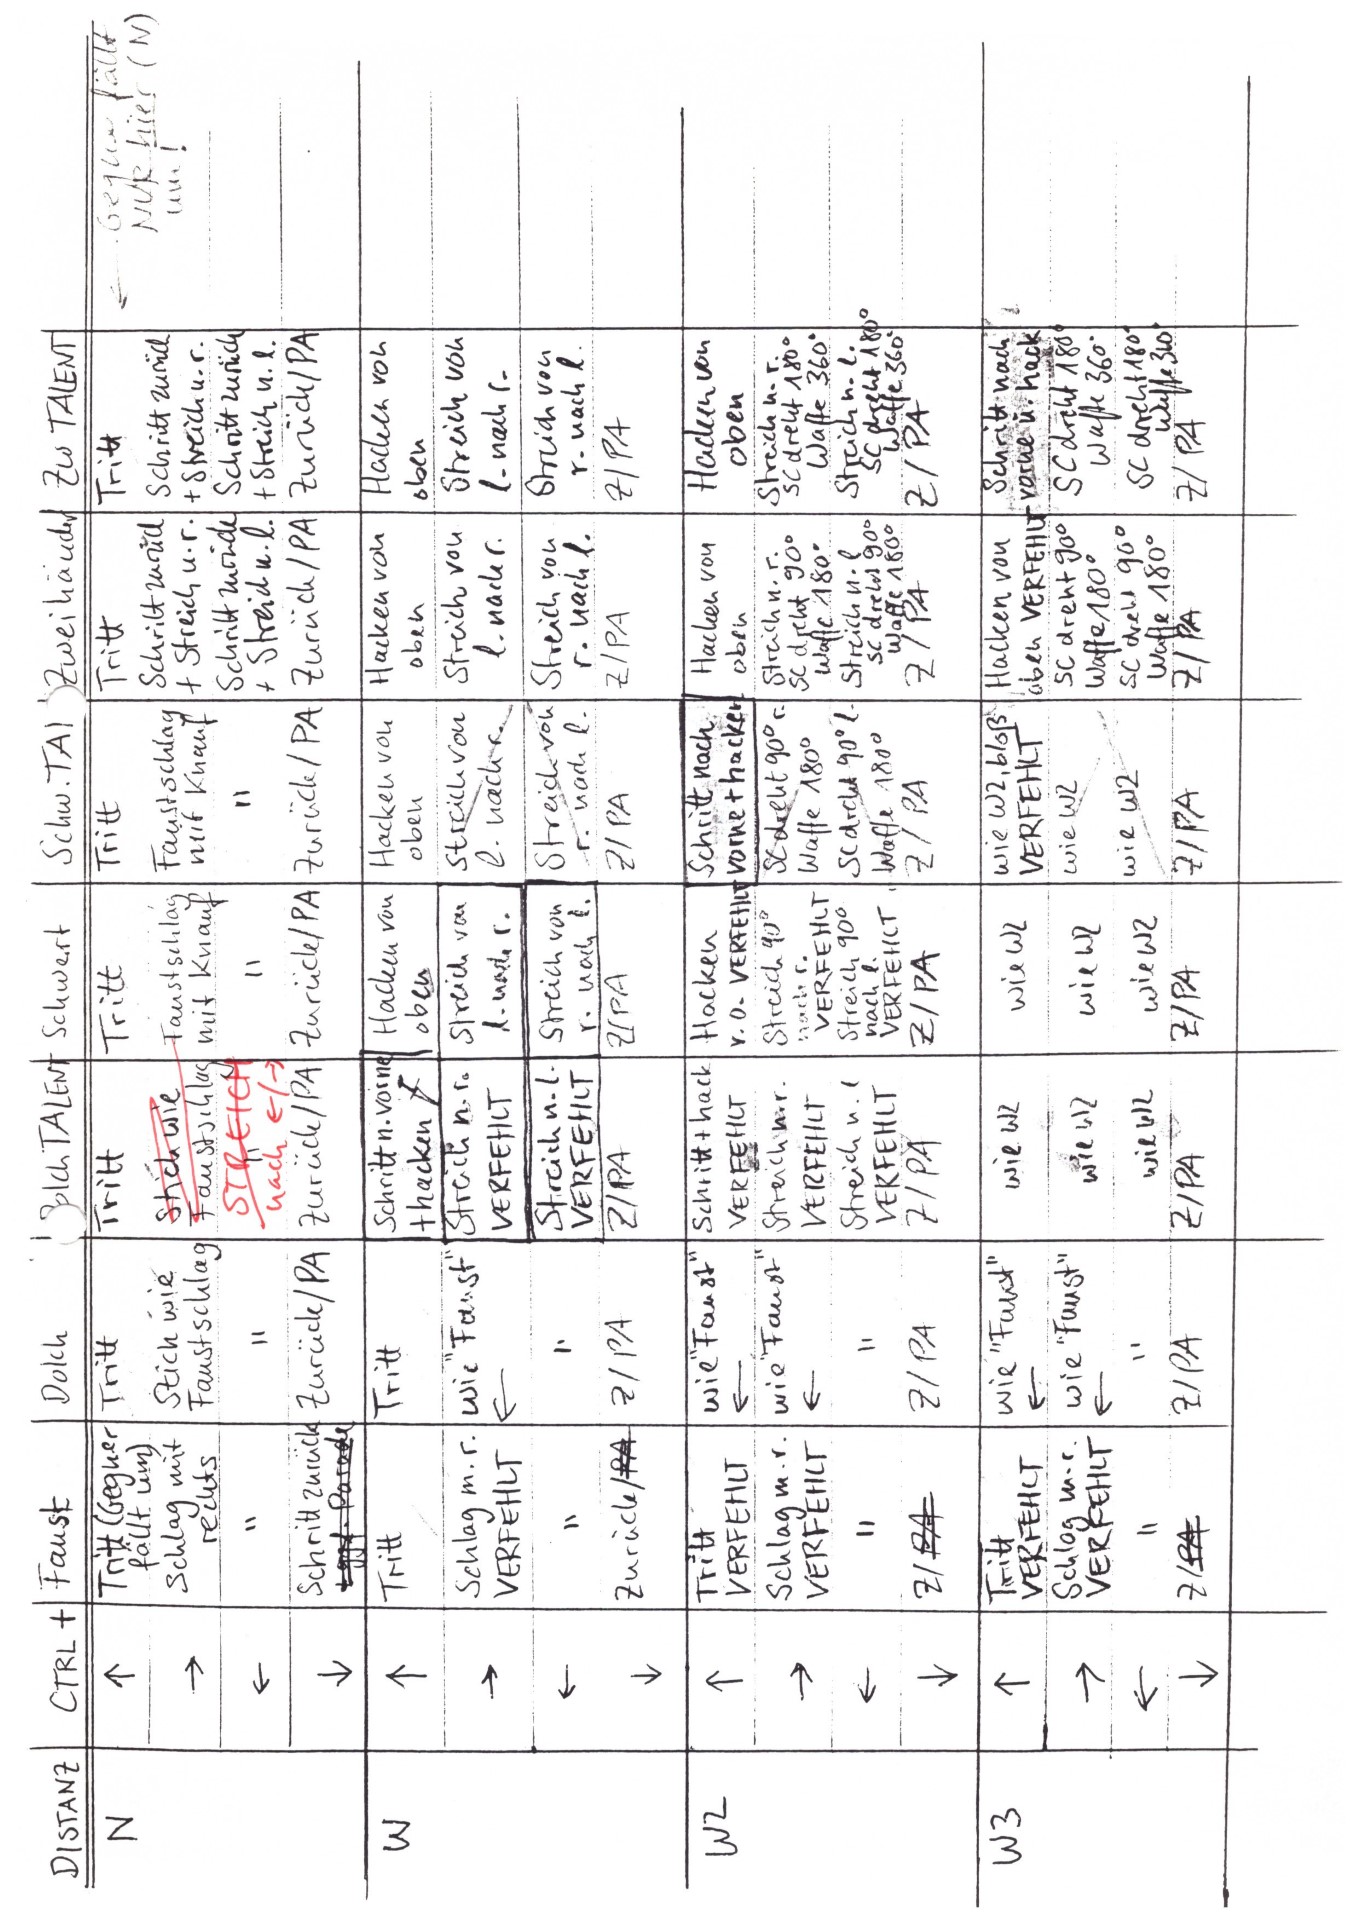 DISTANZ CTRL + Faust Dolch DolchTALENT Schwert Schw. TAl Zweihänder ZW TALENT
N
↑
Tritt (Gegner
fällt um)
Tritt
Tritt
Tritt
Tritt
Tritt
Tritt
← Gegner fällt
NUR hier (N)
um!
→
Schlag mit
rechts
Stich wie
Faustschlag
Stich wie
Faustschlag
Faustschlag
mit Knauf
Faustschlag
mit Knauf
Schritt zurück
+ Streich n. r.
Schritt zurück
+ Streich n. r.
←
"
"
"
STREICH
nach ←/→
"
"
Schritt zurück
+ Streich n. l.
Schritt zurück
+ Streich n. l.
↓
Schritt zurück
+ ggf. Parade
Zurück/PA
Zurück/PA
Zurück/PA
Zurück/PA
Zurück/PA
Zurück/PA
W
↑
Tritt
Tritt
Schritt n. vorne
+ hacken
Hacken von
oben
Hacken von
oben
Hacken von
oben
Hacken von
oben
→
Schlag m. r.
VERFEHLT
wie "Faust"
←
Streich n. r.
VERFEHLT
Streich von
l. nach r.
Streich von
l. nach r.
Streich von
l. nach r.
Streich von
l. nach r.
←
"
"
Streich n. l.
VERFEHLT
Streich von
r. nach l.
Streich von
r. nach l.
Streich von
r. nach l.
Streich von
r. nach l.
↓
Zurück/PA
Z/PA
Z/PA
Z/PA
Z/PA
Z/PA
Z/PA
W2
↑
Tritt
VERFEHLT
wie "Faust"
←
Schritt + hack
VERFEHLT
Hacken
v. o. VERFEHLT
Schritt nach
vorne + hacken
Hacken von
oben
Hacken von
oben
→
Schlag m. r.
VERFEHLT
wie "Faust"
←
Streich n. r.
VERFEHLT
Streich 90°
nach r.
VERFEHLT
SC dreht 90° r.
Waffe 180°
Streich n. r.
SC dreht 90°
Waffe 180°
Streich n. r.
SC dreht 180°
Waffe 360°
←
"
"
Streich n. l
VERFEHLT
Streich 90°
nach l.
VERFEHLT
SC dreht 90° l.
Waffe 180°
Streich n. l
SC dreht 90°
Waffe 180°
Streich n. l.
SC dreht 180°
Waffe 360°
↓
Z/PA
Z/PA
Z/PA
Z/PA
Z/PA
Z/PA
Z/PA
W3
↑
Tritt
VERFEHLT
wie "Faust"
←
wie W2
wie W2
wie W2, bloß
VERFEHLT
Hacken von
oben VERFEHLT
Schritt nach
vorne u. hack
→
Schlag m. r.
VERFEHLT
wie "Faust"
←
wie W2
wie W2
wie W2
SC dreht 90°
Waffe 180°
SC dreht 180°
Waffe 360°
←
"
"
wie W2
wie W2
wie W2
SC dreht 90°
Waffe 180°
SC dreht 180°
Waffe 360°
↓
Z/PA
Z/PA
Z/PA
Z/PA
Z/PA
Z/PA
Z/PA